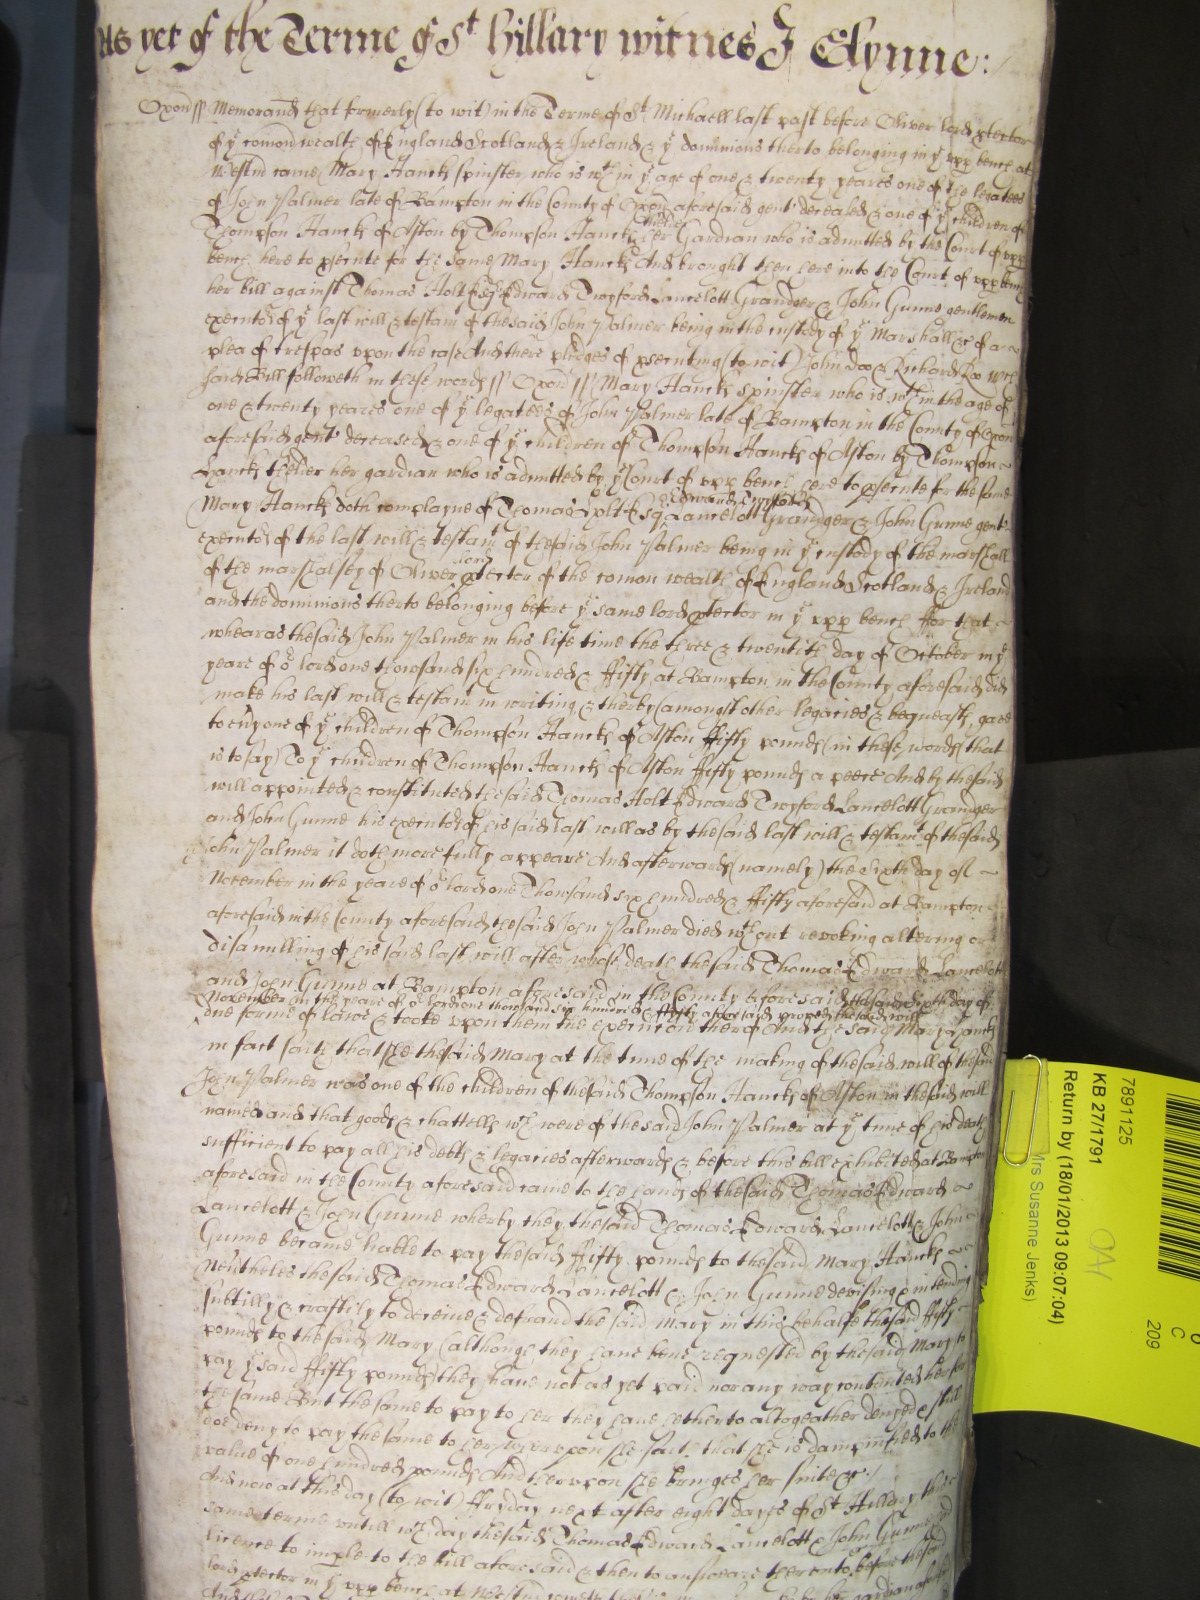 As yet of the Terme of St Hillary witnes J Glynne:
Oxon ss Memorand that formerly (to wit) in the Terme of St Michaell last past before Oliver lord ptector
of ye comonwealth of England Scotland & Ireland & ye dominions therto belonging in ye upp bench at
Westm came Mary Hancks spinster who is wthin ye age of one & twenty yeares one of the legatees
of John Palmer late of Bampton in the County of Oxon aforesaid gent deceased & one of ye children of
Thompson Hancks of Aston by Thompson Hancks thelder her Gardian who is admitted by the Court of upp
bench here to psecute for the same Mary Hancks And brought then here into the Court of upp bench
her bill against Thomas Holt Esq Edward Twyford Lancelott Grandger & John Gunne gentlemen
executors of ye last will & testam of the said John Palmer being in the custody of ye Marshall &c of a
plea of trespas upon the case And there pledges of psecuting (to wit) John Doo & Richard Roo wch
said Bill followeth in these words ss Oxon ss Mary Hancks spinster who is wthin the age of
one & twenty yeares one of ye legatees of John Palmer late of Bampton in the County of Oxon
aforesaid gent deceased & one of ye children of Thompson Hancks of Aston by Thompson
Hancks thelder her gardian who is admitted by ye Court of upp bench here to psecute for the same
Mary Hancks doth complayne of Thomas Holt Esq Edward Twyford Lancelott Grandger & John Gunne gent
executors of the last will & testamt of the said John Palmer being in ye custody of the marshall
of the marshalsey of Oliver lord ptector of the comon wealth of England Scotland & Ireland
and the dominions therto belonging before ye same lord ptector in ye upp bench ffor that
wheras the said John Palmer in his life time the three & twentith day of October in ye
yeare of or lord one thowsand six hundred & ffifty at Bampton in the County aforesaid did
make his last will & testam in writing & therby (amongst other legacies & bequeasts) gave
to evy one of ye children of Thompson Hancks of Aston ffifty pounds (in these words that
is to say) To ye children of Thompson Hancks of Aston ffifty pounds a peece And by the said
will appointed & constituted the said Thomas Holt Edward Twyford Lancelott Grandger
and John Gunne his executors of his said last will as by the said last will & testamt of the said
John Palmer it doth more fully appeare And afterwards (namely) the Sixth day of
November in the yeare of or lord one Thousand six hundred & ffifty aforesaid at Bampton
aforesaid in the County aforesaid the said John Palmer died wthout revoking altering or
disanulling of his said last will after whose death the said Thomas Edward Lancelott
and John Gunne at Bampton aforesaid in the County aforesaid the said sixth day of
November in the yeare of or lord one thousand six hundred & ffifty aforesaid proved the said will
due forme of lawe & tooke upon them the execution therof And the said Mary Hancks
in fact saith that she the said Mary at the time of the making of the said will of the said
John Palmer was one of the children of the said Thompson Hancks of Aston in the said will
named and that goods & chattells wch were of the said John Palmer at ye time of his death
sufficient to pay all his debts & legacies afterwards & before this bill exhibited at Bampton
aforesaid in the County aforesaid came to the hands of the said Thomas Edward
Lancelott & John Gunne wherby they the said Thomas Edward Lancelott & John
Gunne became liable to pay the said ffifty pounds to the said Mary Hancks
Nevtheles the said Thomas Edward Lancelott & John Gunne devising & intending
subtilly & craftily to deceive & defraud the said Mary in this behalfe the said ffifty
pounds to the said Mary (although they have bene requested by the said Mary to
pay ye said ffifty pounds) they have not as yet paid nor any way contented her for
the same But the same to pay to her they have hetherto altogeather denyed & still
doe deny to pay the same to her wherupon she saith that she is dampnified to the
value of one hundred pounds And therupon she bringes her suite &c
And now at this day (to wit) ffryday next after eight dayes of St Hillary this
same terme untill wch day the said Thomas Edward Lancelott & John Gunne had
licence to imple to the bill aforesaid & then to answeare therunto before the said
lord ptector in ye upp bench at Westm
7891125
KB 27/1791
Return by (18/01/2013 09:07:04)
Mrs Susanne Jenks)
C
209